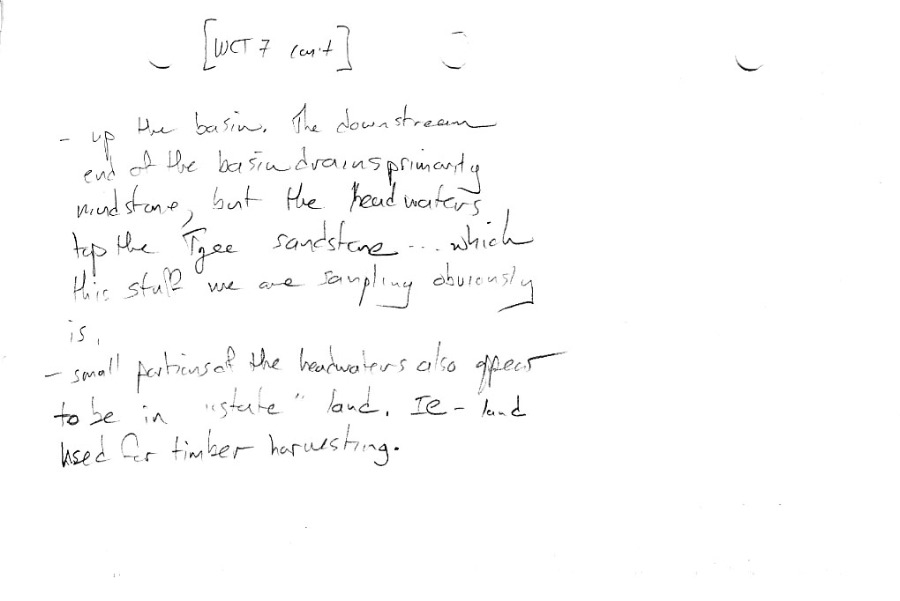 [WCT 7 con't]
- up the basin. The downstream
end of the basin drains primarily
mudstone, but the headwaters
tap the Tyee sandstone ... which
this stuff we are sampling obviously
is.
- small portions of the headwaters also appear
to be in "state" land. IE - land
used for timber harvesting.